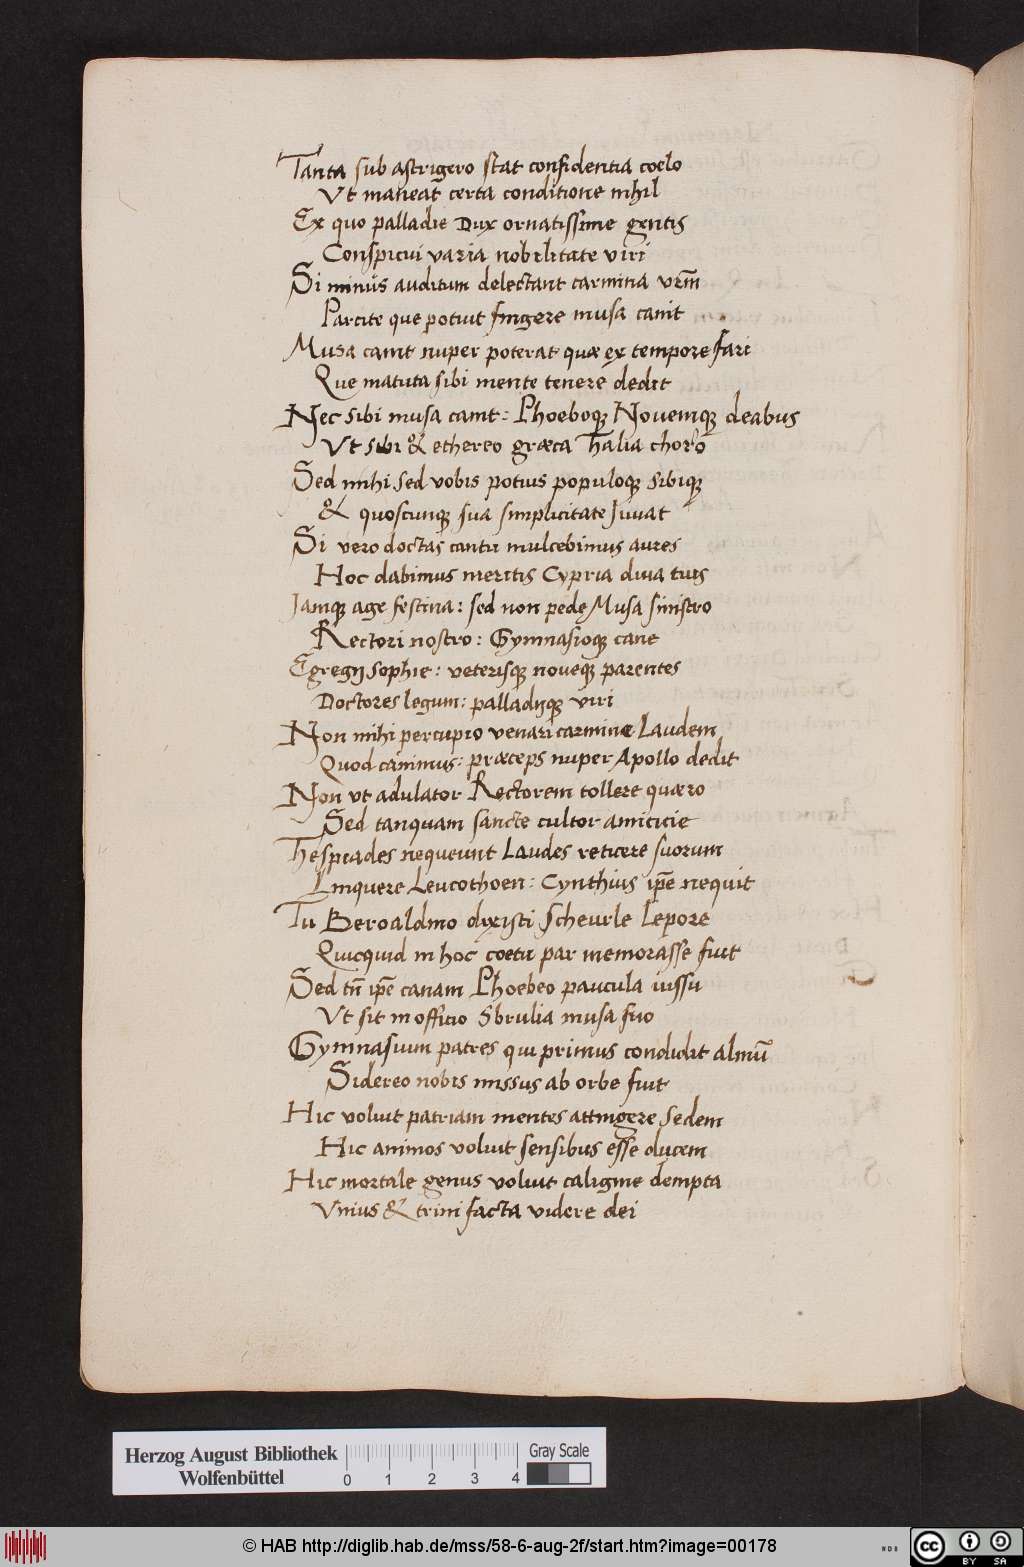 Tanta sub astrigero stat confidentia coelo
Vt maneat certa conditione nihil
Ex quo palladie Dux ornatissime gentis
Conspicui varia nobilitate viri
Si minus auditum delectant carmina vr̄m
Parcite que potuit fingere musa canit
Musa canit nuper poterat quæ ex tempore fari
Que matuta sibi mente tenere dedit
Nec sibi musa canit: Phoeboqꝫ Nouemqꝫ deabus
Vt sibi & ethereo græca Thalia choro
Sed mihi sed vobis potius populoqꝫ sibiqꝫ
& quoscunqꝫ sua simplicitate Juuat
Si vero doctas cantu mulcebimus aures
Hoc dabimus meritis Cypria diua tuis
Jamqꝫ age festina: sed non pede Musa sinistro
Rectori nostro: Gymnasioqꝫ cane
Egregij sophie: veterisqꝫ noueqꝫ parentes
Doctores legum: palladijqꝫ viri
Non mihi percupio venari carmine Laudem
Quod canimus: præceps nuper Apollo dedit
Non vt adulator Rectorem tollere quæro
Sed tanquam sancte cultor amicicie
Thespiades nequeunt Laudes reticere suorum
Linquere Leucothoen: Cynthius ip̄e nequit
Tu Beroaldino dixisti Scheurle Lepore
Quicquid in hoc coetu par memorasse fuit
Sed tn̄ ip̄e canam Phoebeo paucula iussu
Vt sit in officio Sbrulia musa suo
Gymnasium patres qui primus condidit almū
Sidereo nobis missus ab orbe fuit
Hic voluit patriam mentes attingere sedem
Hic animos voluit sensibus esse ducem
Hic mortale genus voluit caligine dempta
Vnius & trini facta videre dei
Herzog August Bibliothek
Wolfenbüttel
0 1 2 3 4
Gray Scale
© HAB http://diglib.hab.de/mss/58-6-aug-2f/start.htm?image=00178
cc BY SA